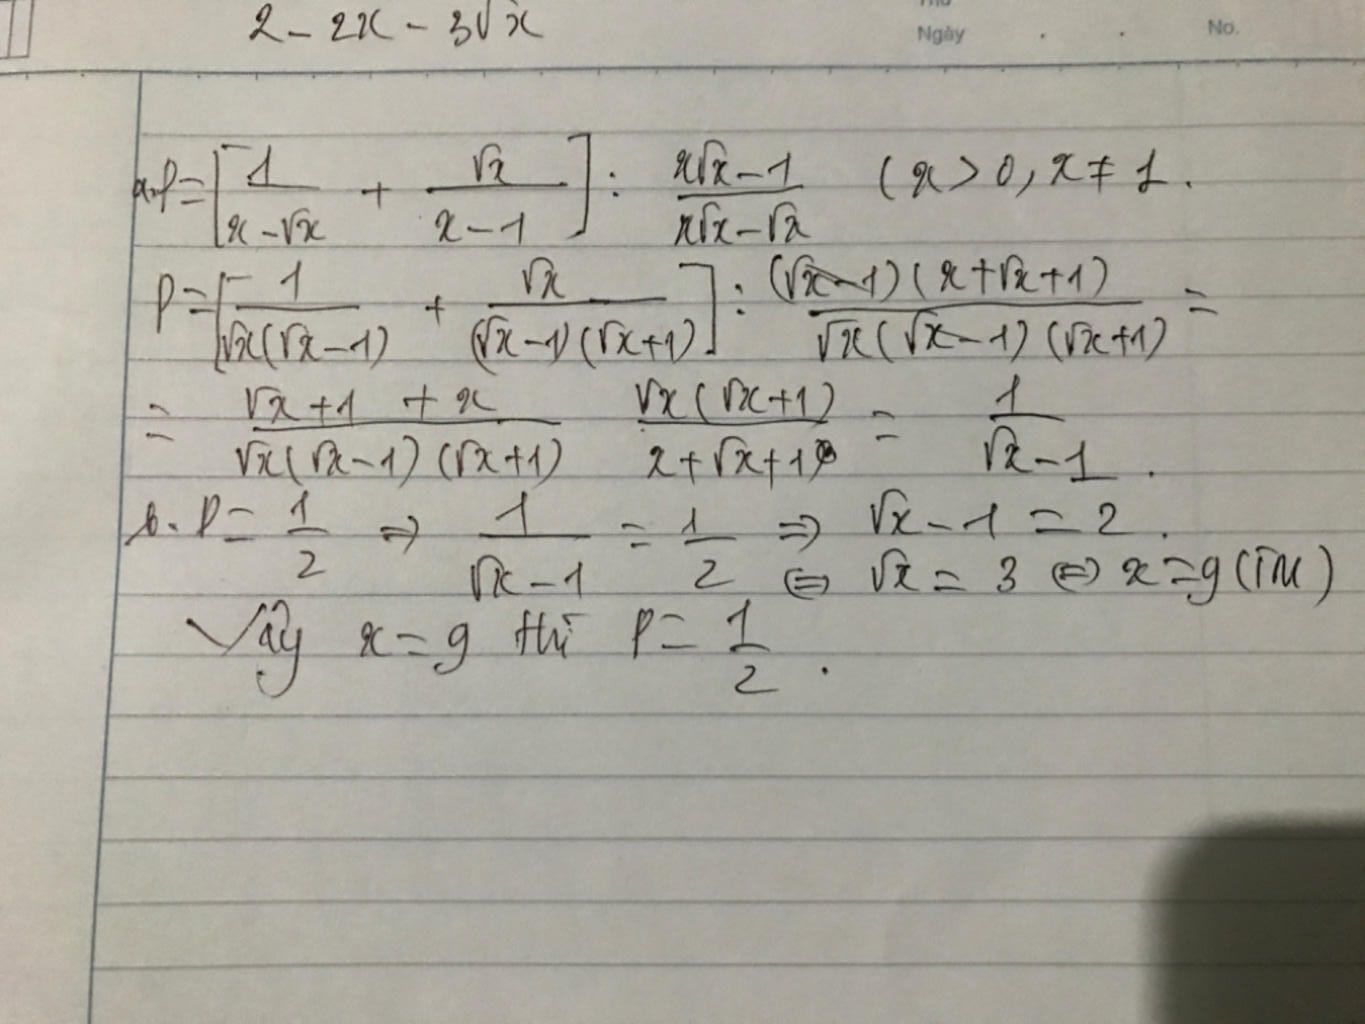 2 - 2x - 3√x
Thứ
Ngày . . No.
a. P = [1/(x - √x) + √x/(x - 1)] : (x√x - 1)/(x√x - √x) (x > 0, x ≠ 1.
P = [1/(√x(√x - 1)) + √x/((√x - 1)(√x + 1))] : ((√x - 1)(x + √x + 1))/(√x(√x - 1)(√x + 1)) =
= (√x + 1 + x)/(√x(√x - 1)(√x + 1)) (√x(√x + 1))/(x + √x + 1) = 1/(√x - 1).
b. P = 1/2 ⇒ 1/(√x - 1) = 1/2 ⇒ √x - 1 = 2.
⇔ √x = 3 ⇔ x = 9 (TM)
Vậy x = 9 thì P = 1/2.